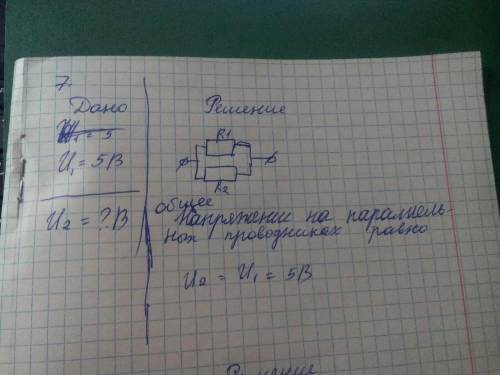 7.
Дано
U₁ = 5В
U₂ = ?В
Решение
R1
R2
общее
Напряжении на параллель-
ных проводниках равно
U₂ = U₁ = 5В
Решение